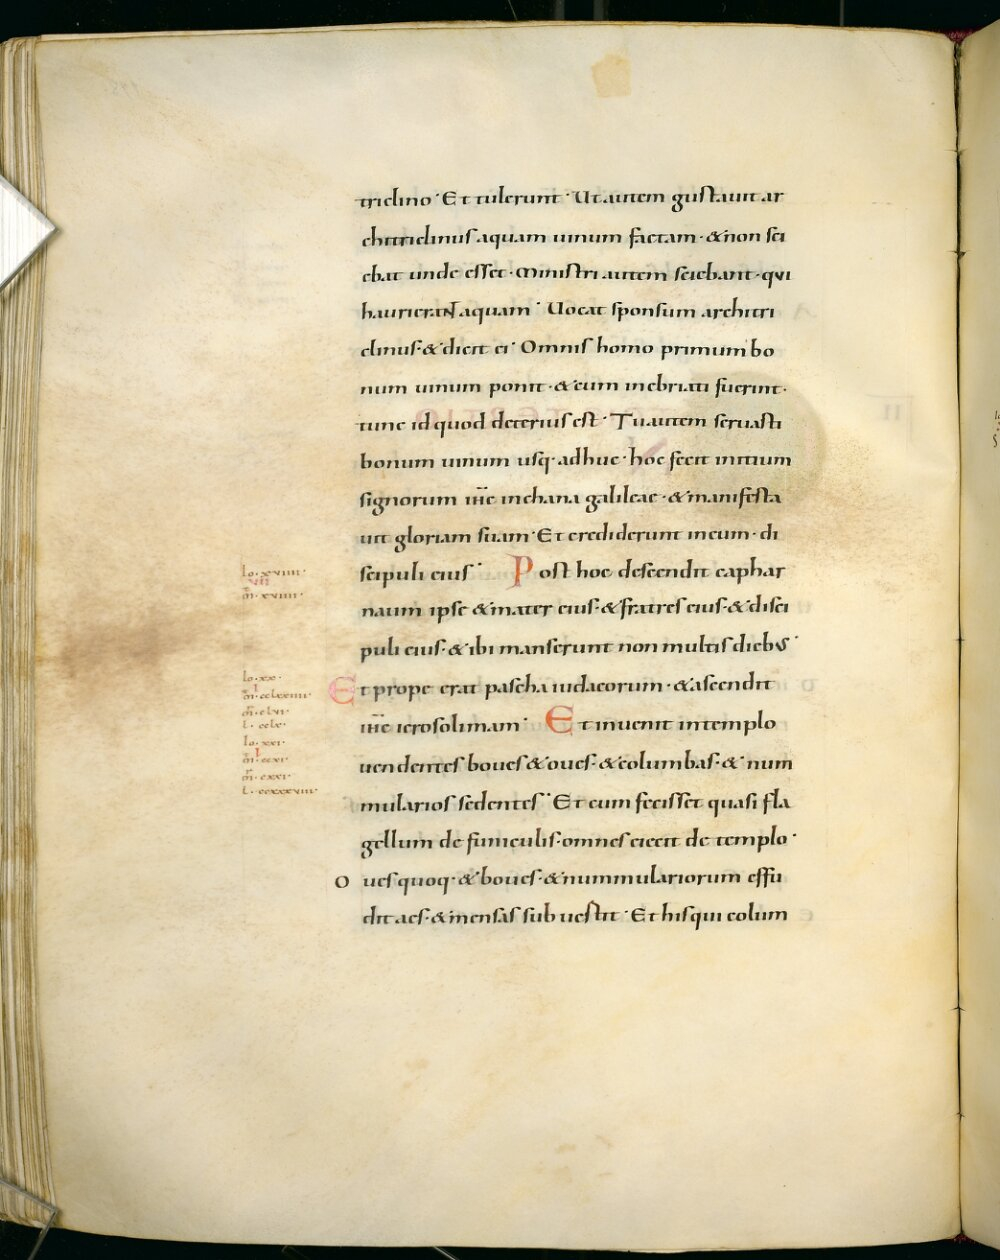 triclino · Et tulerunt · Ut autem gustauit ar
chitriclinus aquam uinum factam · & non sci
ebat unde esset · Ministri autem sciebant · qui
haurierant aquam · Uocat sponsum architri
clinus · & dicit ei · Omnis homo primum bo
num uinum ponit · & cum inebriati fuerint ·
tunc id quod deterius est · Tu autem seruasti
bonum uinum usq· adhuc · hoc fecit initium
signorum ihc in chana galileae · & manifesta
uit gloriam suam · Et crediderunt in eum · di
scipuli eius · Post hoc descendit caphar
naum ipse & mater eius · & fratres eius · & disci
puli eius · & ibi manserunt non multis dieb; ·
Et prope erat pascha iudaeorum · & ascendit
ihc ierosolimam · Et inuenit in templo
uendentes boues & oues · & columbas · & num
mularios sedentes · Et cum fecisset quasi fla
gellum de funiculis · omnes eiecit de templo ·
O ues quoq· & boues · & nummulariorum effu
dit aes · & mensas subuertit · Et his qui colum
Io · xviiii ·
vii
m · xviiii ·
Io · xx ·
i
m · cclxxiiii ·
l · cclx ·
Io · xxi ·
i
m · ccxi ·
m · cxxi ·
l · ccxxxviii ·